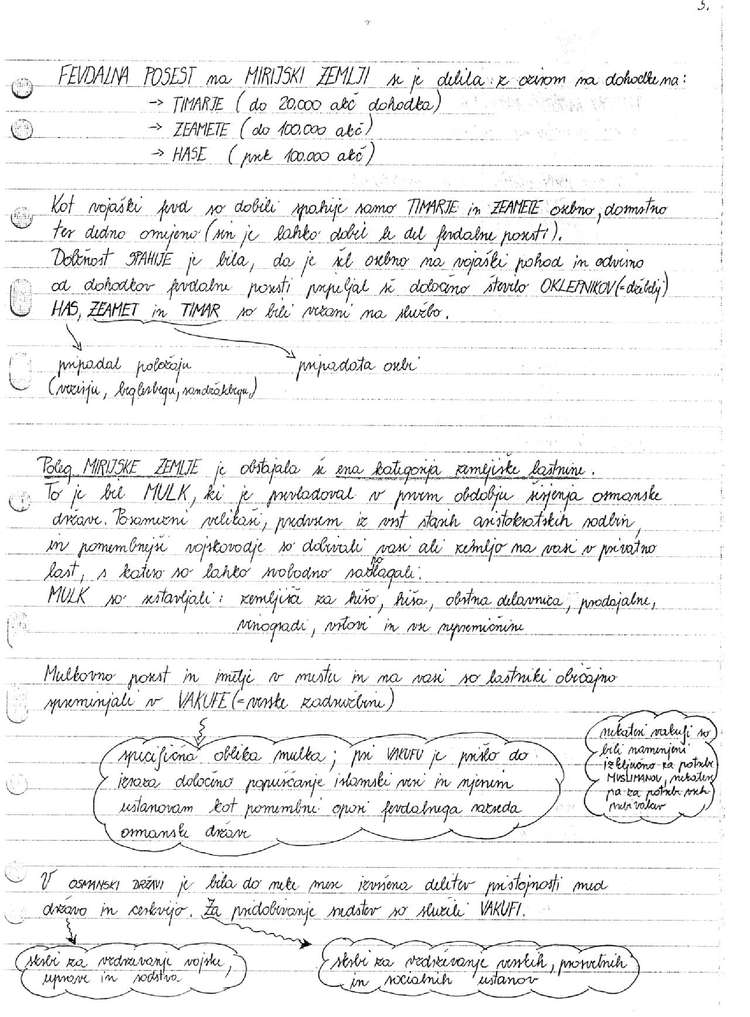 5.
FEVDALNA POSEST na MIRIJSKI ZEMLJI se je delila z ozirom na dohodke na:
→ TIMARJE (do 20.000 akč dohodka)
→ ZEAMETE (do 100.000 akč)
→ HASE (prek 100.000 akč)
Kot vojaški fevd so dobili spahije samo TIMARJE in ZEAMETE osebno, dosmrtno
ter dedno omejeno (sin je lahko dobil le del fevdalne posesti).
Dolžnost SPAHIJE je bila, da je šel osebno na vojaški pohod in odvisno
od dohodkov fevdalne posesti pripeljal še določeno število OKLEPNIKOV
HAS, ZEAMET in TIMAR so bili vezani na službo.
pripadal položaju
pripadata osebi
(vezirju, beglerbegu, sandžakbegu,)
Poleg MIRIJSKE ZEMLJE je obstajala še ena kategorija zemljiške lastnine.
To je bil MULK, ki je prevladoval v prvem obdobju širjenja osmanske
države. Posamezni velikaši, predvsem iz vrst starih aristokratskih rodbin,
in pomembnejši vojskovodje so dobivali vasi ali zemljo na vasi v privatno
last, s katero so lahko svobodno razpolagali.
MULK so sestavljali: zemljišča za hišo, hiša, obrtna delavnica, prodajalne,
vinogradi, vrtovi in vse nepremičnine
Mulkovno posest in imetje v mestu in na vasi so lastniki običajno
spreminjali v VAKUFE (= verske zadružbine)
specifična oblika mulka; pri VAKUFU je prišlo do
izraza določeno popuščanje islamski veri in njenim
ustanovam kot pomembni opori fevdalnega razreda
osmanske države
nekateri vakufi so
bili namenjeni
izključno za potrebe
MUSLIMANOV, nekateri
pa za potrebe vseh
prebivalcev
V OSMANSKI DRŽAVI je bila do neke mere izvršena delitev pristojnosti med
državo in cerkvijo. Za pridobivanje sredstev so služili VAKUFI.
skrbi za vzdrževanje vojske,
uprave in sodstva
skrbi za vzdrževanje verskih, prosvetnih
in socialnih ustanov